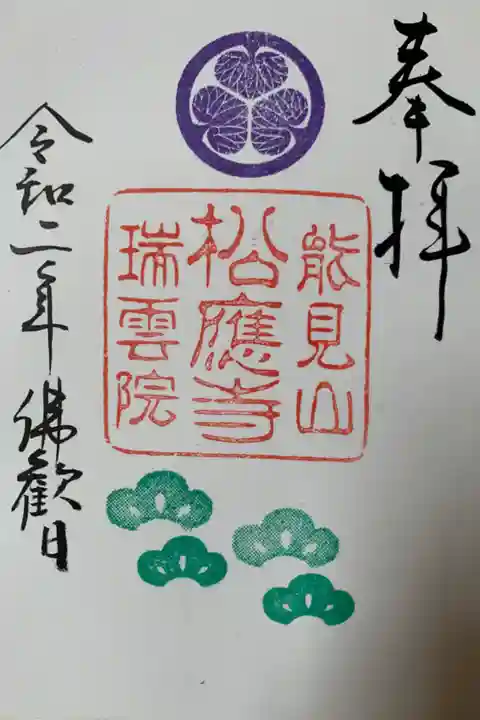 奉拝
能見山
松應寺
瑞雲院
令和二年 佛歓日